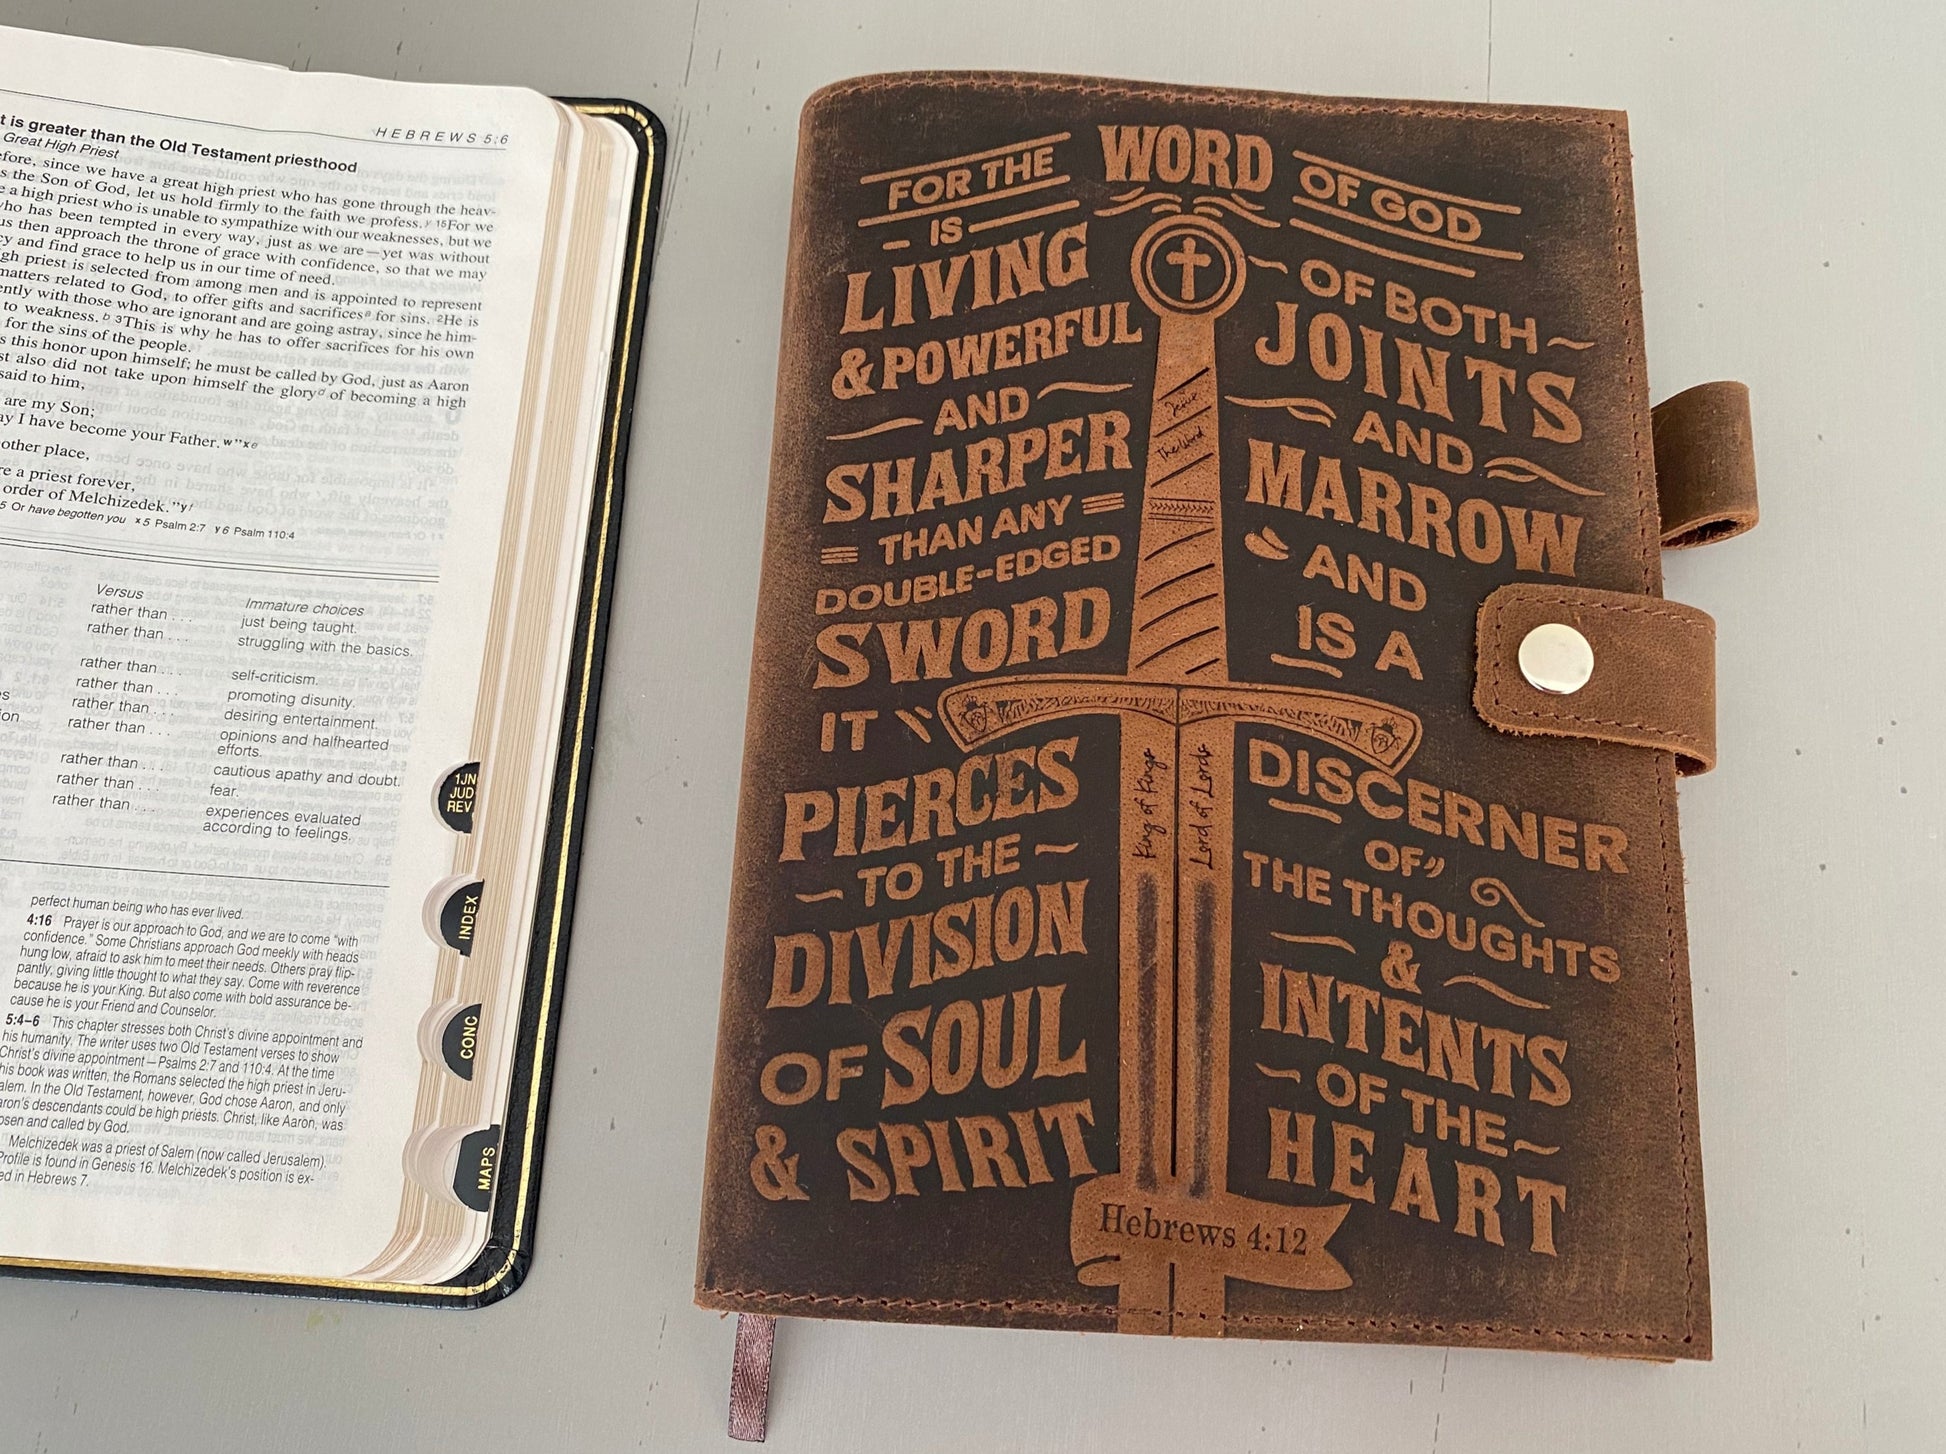 HEBREWS 5:6
t is greater than the Old Testament priesthood
Great High Priest
efore, since we have a great high priest who has gone through the heav-
s the Son of God, let us hold firmly to the faith we profess. y 15For we
e a high priest who is unable to sympathize with our weaknesses, but we
who has been tempted in every way, just as we are—yet was without
us then approach the throne of grace with confidence, so that we may
cy and find grace to help us in our time of need.
gh priest is selected from among men and is appointed to represent
matters related to God, to offer gifts and sacrifices a for sins. 2He is
ently with those who are ignorant and are going astray, since he him-
to weakness. b 3This is why he has to offer sacrifices for his own
for the sins of the people.
s this honor upon himself; he must be called by God, just as Aaron
st also did not take upon himself the glory d of becoming a high
said to him,
are my Son;
ay I have become your Father. w"x e
other place,
re a priest forever,
order of Melchizedek."y f
5 Or have begotten you x 5 Psalm 2:7 y 6 Psalm 110:4
Versus Immature choices
rather than . . . just being taught.
rather than . . . struggling with the basics.
rather than . . . self-criticism.
rather than . . . promoting disunity.
rather than . . . desiring entertainment.
rather than . . . opinions and halfhearted
efforts.
rather than . . . cautious apathy and doubt.
rather than . . . fear.
rather than . . . experiences evaluated
according to feelings.
perfect human being who has ever lived.
4:16 Prayer is our approach to God, and we are to come "with
confidence." Some Christians approach God meekly with heads
hung low, afraid to ask him to meet their needs. Others pray flip-
pantly, giving little thought to what they say. Come with reverence
because he is your King. But also come with bold assurance be-
cause he is your Friend and Counselor.
5:4–6 This chapter stresses both Christ's divine appointment and
his humanity. The writer uses two Old Testament verses to show
Christ's divine appointment—Psalms 2:7 and 110:4. At the time
his book was written, the Romans selected the high priest in Jeru-
alem. In the Old Testament, however, God chose Aaron, and only
aron's descendants could be high priests. Christ, like Aaron, was
osen and called by God.
Melchizedek was a priest of Salem (now called Jerusalem).
Profile is found in Genesis 16. Melchizedek's position is ex-
ed in Hebrews 7.
1JN
JUD
REV
INDEX
CONC
MAPS
FOR THE WORD OF GOD
IS
LIVING
& POWERFUL
AND
SHARPER
THAN ANY
DOUBLE-EDGED
SWORD
IT
PIERCES
TO THE
DIVISION
OF SOUL
& SPIRIT
Jesus
The Word
King of Kings
Lord of Lords
OF BOTH
JOINTS
AND
MARROW
AND
IS A
DISCERNER
OF
THE THOUGHTS
&
INTENTS
OF THE
HEART
Hebrews 4:12